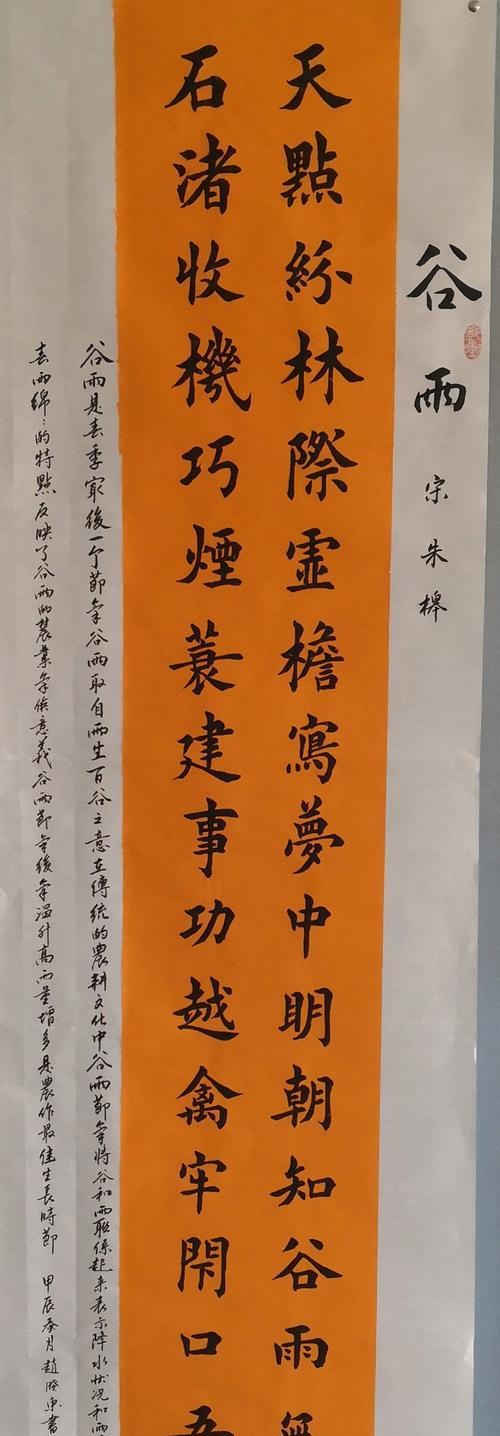 谷雨 宋 朱槔
天點紛林際虛檐寫夢中明朝知谷雨無
石渚收機巧煙蓑建事功越禽牢閇口吾
谷雨是春季最後一个節氣谷雨取自雨生百谷之意在傳統的農耕文化中谷雨節氣將谷和雨聯係起来表示降水狀況和雨
春雨綿〻的特點反映了谷雨的農業氣候意義谷雨節氣後氣温升高雨量增多是農作最佳生長時節 甲辰春月趙 東書